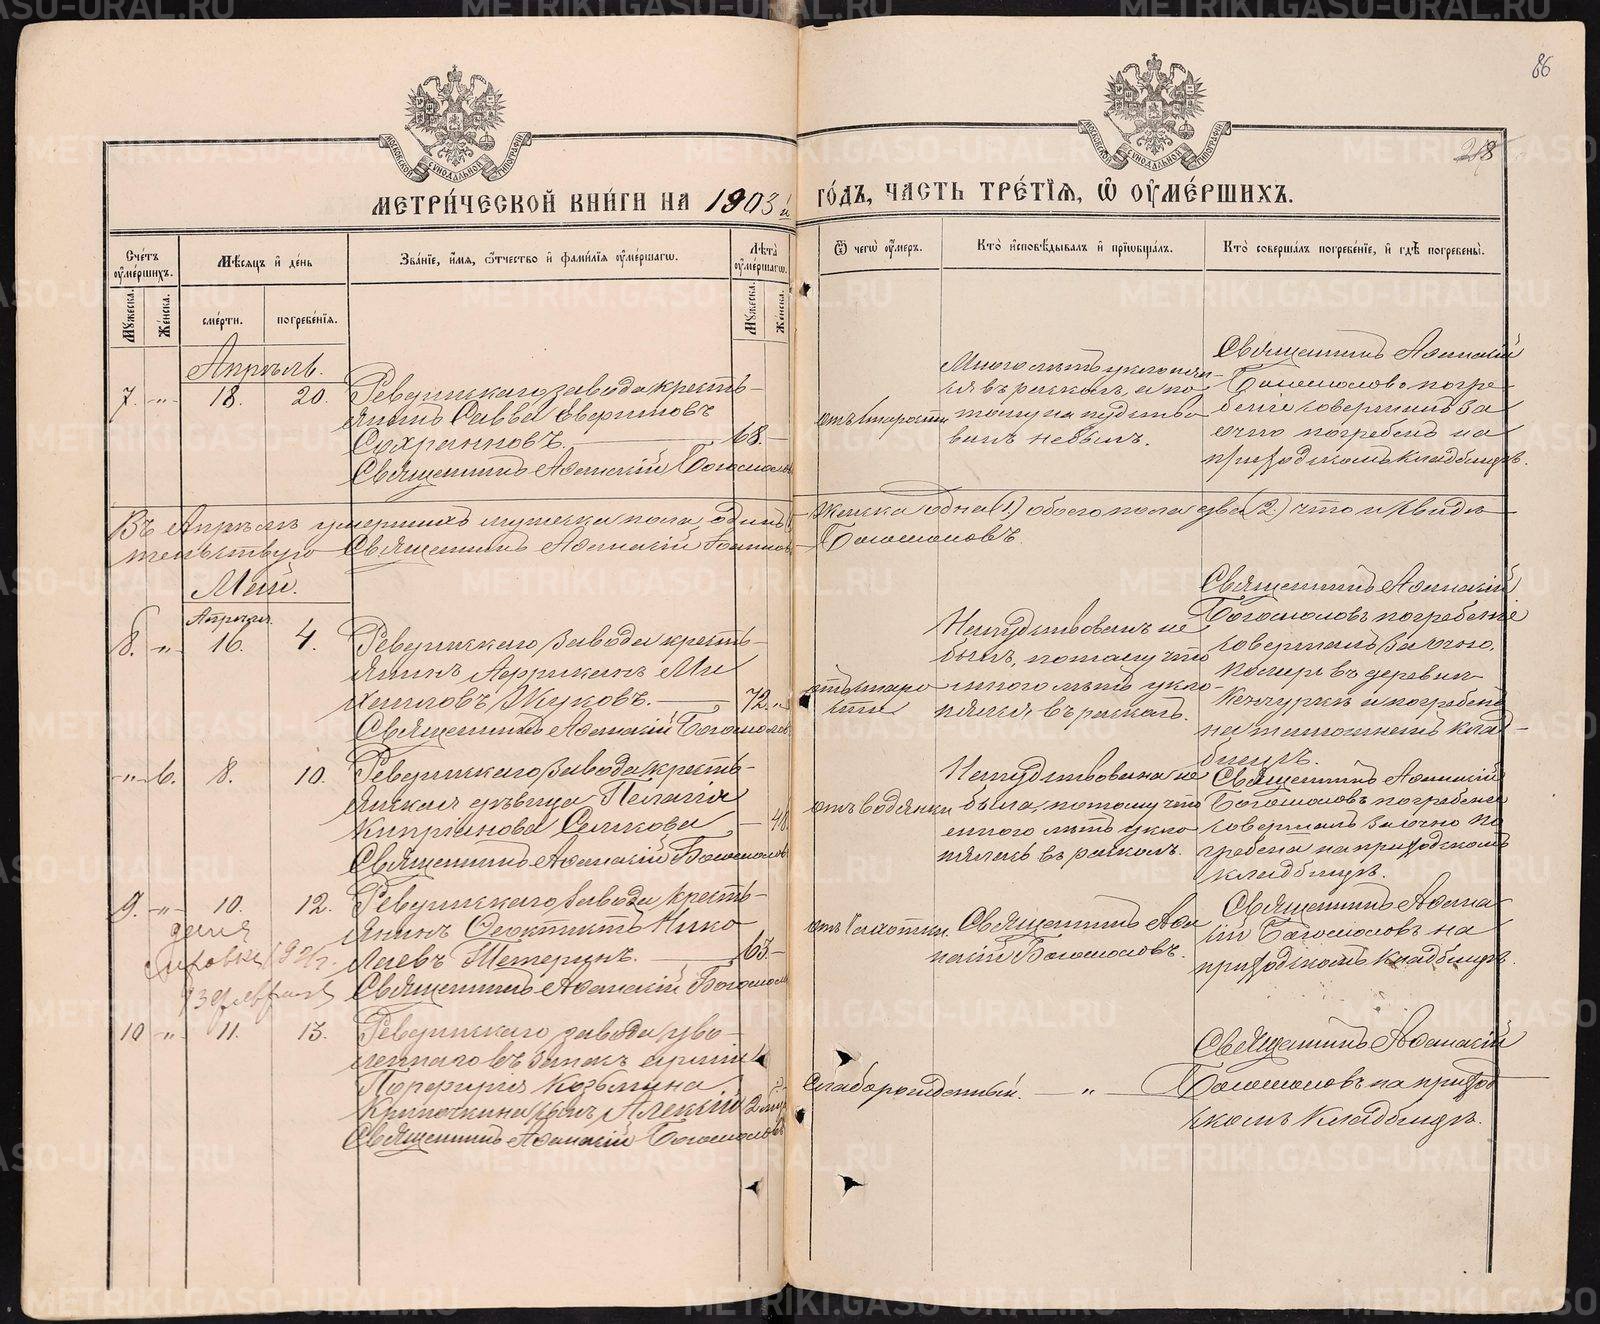 86
218
МОСКОВСКОЙ СѴНОДАЛЬНОЙ ТИПОГРАФІИ
МОСКОВСКОЙ СѴНОДАЛЬНОЙ ТИПОГРАФІИ
МЕТРИ́ЧЕСКОЙ КНИ́ГИ НА 1903й ГО́ДЪ, ЧАСТЬ ТРЕ́ТІѦ, Ѿ ОУ҆МЕ́РШИХЪ.
Сче́тъ оу҆ме́ршихъ.
Мꙋжеска.
Же́нска.
Мѣ́сѧцъ и҆ де́нь
сме́рти.
погребе́нїѧ.
Зва́нїе, и҆́мѧ, ѻ҆́тчество и҆ фами́лїѧ оу҆ме́ршагѡ.
Лѣ́та оу҆ме́ршагѡ.
Мꙋжеска.
Же́нска.
Ѿ чегѡ̀ оу҆́меръ.
Кто̀ и҆сповѣ́дывалъ и҆ прїѡбща́лъ.
Кто̀ соверша́лъ погребе́нїе, и҆ гдѣ̀ погребены̀.
Апрѣль.
7. " 18. 20. Ревдинскаго завода кресть-
янинъ Савва Аверьяновъ
68.
Священникъ Аѳанасій Богомоловъ
отъ старости
Много лѣтъ уклонял-
ся въ расколъ, а по-
тому напутство-
ванъ небылъ.
Священникъ Аѳанасій
Богомоловъ погре-
беніе совершилъ за
очно погребенъ на
приходскомъ кладбищѣ.
Въ Апрѣлѣ умершихъ мужеска пола одинъ
женска одна (1) обоего пола два (2) что и свидѣ-
тельствую Священникъ Аѳанасій
Богомоловъ
Май.
Апрѣля
8. " 16. 4. Ревдинскаго завода кресть-
янинъ Африканъ Ми
хаиловъ Жуковъ. 72. "
Священникъ Аѳанасій Богомоловъ
отъ старо
сти
Напутствованъ не
былъ, потому что
много лѣтъ укло-
нялся въ расколъ.
Священникъ Аѳанасій
Богомоловъ погребеніе
совершалъ заочно.
Померъ въ деревнѣ
погребенъ
на тамошнемъ клад-
бищѣ.
" 6. 8. 10. Ревдинскаго завода кресть-
янская дѣвица Пелагія
Кипріанова 48.
Священникъ Аѳанасій Богомоловъ
отъ водянки
Напутствована не
была, потому что
много лѣтъ укло
нялась въ расколъ.
Священникъ Аѳанасій
Богомоловъ погребеніе
совершалъ заочно по
гребена на приходскомъ
кладбищѣ.
9. " 10. 12. Ревдинскаго завода кресть-
янинъ Ѳеоктистъ Нико
лаевъ Шемеринъ. 63.
Священникъ Аѳанасій Богомоловъ
13 февраля
отъ чахотки
Священникъ Аѳа
насій Богомоловъ.
Священникъ Аѳана
сій Богомоловъ на
приходскомъ кладбищѣ.
10 " 11. 13. Ревдинскаго завода уво-
леннаго въ запасъ арміи
Порфирія Козьмина
сынъ Алексій 2
Священникъ Аѳанасій Богомоловъ
Слаборожденный. "
Священникъ Аѳанасій
Богомоловъ на приход
скомъ кладбищѣ.